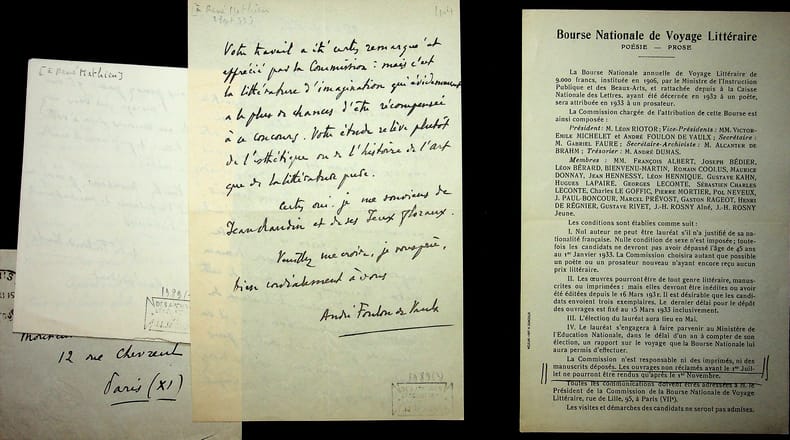 [à René Mathieu]
1989(4)
Monsieur
12 rue Chevreul
Paris (XI)
[à René Mathieu
Sept 33]
Votre travail a été certes remarqué et
apprécié par la Commission : mais c'est
la littérature d'imagination qui évidemment
a le plus de chances d'être récompensée
à ce concours. Votre étude relève plutôt
de l'esthétique ou de l'histoire de l'art
que de la littérature pure.
Certes, oui, je me souviens de
Jean chaudin et de ses Jeux floraux.
Veuillez me croire, je vous prie,
bien cordialement à vous
André Foulon de Vaulx
1989(4)
Bourse Nationale de Voyage Littéraire
POÉSIE — PROSE
La Bourse Nationale annuelle de Voyage Littéraire de
9.000 francs, instituée en 1906, par le Ministre de l'Instruction
Publique et des Beaux-Arts, et rattachée depuis à la Caisse
Nationale des Lettres, ayant été décernée en 1932 à un poète,
sera attribuée en 1933 à un prosateur.
La Commission chargée de l'attribution de cette Bourse est
ainsi composée :
Président : M. LÉON RIOTOR; Vice-Présidents : MM. VICTOR-
EMILE MICHELET et ANDRÉ FOULON DE VAULX; Secrétaire :
M. GABRIEL FAURE; Secrétaire-Archiviste : M. ALCANTER DE
BRAHM; Trésorier : M. ANDRÉ DUMAS.
Membres : MM. FRANÇOIS ALBERT, JOSEPH BÉDIER,
LÉON BÉRARD, BIENVENU-MARTIN, ROMAIN COOLUS, MAURICE
DONNAY, JEAN HENNESSY, LÉON HENNIQUE, GUSTAVE KAHN,
HUGUES LAPAIRE, GEORGES LECOMTE, SÉBASTIEN CHARLES
LECONTE, CHARLES LE GOFFIC, PIERRE MORTIER, POL NEVEUX,
J. PAUL-BONCOUR, MARCEL PRÉVOST, GASTON RAGEOT, HENRI
DE RÉGNIER, GUSTAVE RIVET, J.-H. ROSNY Aîné, J.-H. ROSNY
Jeune.
Les conditions sont établies comme suit :
I. Nul auteur ne peut être lauréat s'il n'a justifié de sa na-
tionalité française. Nulle condition de sexe n'est imposée; toute-
fois les candidats ne devront pas avoir dépassé l'âge de 45 ans
au 1er Janvier 1933. La Commission choisira autant que possible
un poète ou un prosateur nouveau n'ayant encore reçu aucun
prix littéraire.
II. Les œuvres pourront être de tout genre littéraire, manus-
crites ou imprimées : mais elles devront être inédites ou avoir
été éditées depuis le 16 Mars 1931. Il est désirable que les candi-
dats envoient trois exemplaires. Le dernier délai pour le dépôt
des ouvrages est fixé au 15 Mars 1933 inclusivement.
III. L'élection du lauréat aura lieu en Mai.
IV. Le lauréat s'engagera à faire parvenir au Ministère de
l'Education Nationale, dans le délai d'un an à compter de son
élection, un rapport sur le voyage que la Bourse Nationale lui
aura permis d'effectuer.
La Commission n'est responsable ni des imprimés, ni des
manuscrits déposés. Les ouvrages non réclamés avant le 1er Juil-
let ne pourront être rendus qu'après le 1er Novembre.
Toutes les communications doivent être adressées à M. le
Président de la Commission de la Bourse Nationale de Voyage
Littéraire, rue de Lille, 95, à Paris (VIIe).
Les visites et démarches des candidats ne seront pas admises.